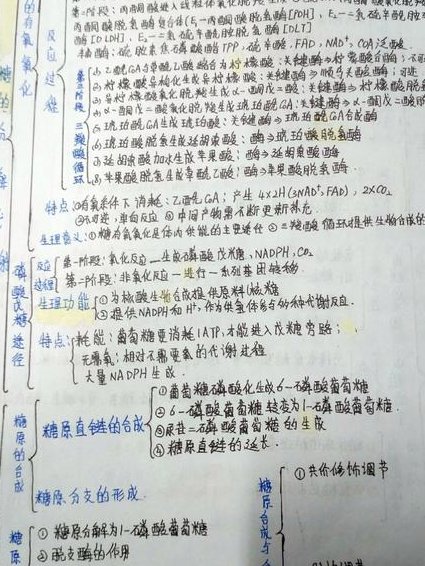 的有氧氧化
反应过程
酶[DLDH], E₂—二氢硫辛酰胺脱氢酶[DLT]
辅酶: 硫胺素焦磷酸酯TPP, 硫辛酸, FAD, NAD⁺, COA, 泛酸
第三阶段 三羧酸循环
(1) 乙酰GA与草酰乙酸缩合为柠檬酸: 关键酶→柠檬酸合酶; 不可
(2) 柠檬酸异构化生成异柠檬酸: 关键酶→顺乌头酸酶; 可逆
(3) 异柠檬酸氧化脱羧生成α-酮戊二酸: 关键酶→异柠檬酸脱氢
(4) α-酮戊二酸氧化脱羧生成琥珀酰GA: 关键酶→α-酮戊二酸脱
(5) 琥珀酰GA生成琥珀酸: 关键酶→琥珀酰GA合成酶
(6) 琥珀酸脱氢生成延胡索酸: 酶→琥珀酸脱氢酶
(7) 延胡索酸加水生成苹果酸: 酶→延胡索酸酶
(8) 苹果酸脱氢生成草酰乙酸: 酶→苹果酸脱氢酶
特点: ①有氧条件下 消耗: 乙酰GA; 产生 4×2H(3NAD⁺, FAD), 2×CO₂
②不可逆, 单向反应 ③中间产物需不断更新补充.
生理意义: ①糖有氧氧化是体内供能的主要途径 ②三羧酸循环提供生物合成的
磷酸戊糖途径
反应过程
第一阶段: 氧化反应—生成磷酸戊糖, NADPH, CO₂
第二阶段: 非氧化反应—进行一系列基团转移
生理功能
①为核酸生物合成提供原料核糖
②提供NADPH和H⁺, 作为供氢体参与多种代谢反应.
特点:
耗能: 葡萄糖要消耗1ATP, 才能进入戊糖旁路;
无需氧: 相对不需要氧的代谢过程
大量NADPH生成.
糖原的合成
糖原直链的合成
①葡萄糖磷酸化生成6-磷酸葡萄糖
②6-磷酸葡萄糖转变为1-磷酸葡萄糖.
③尿苷二磷酸葡萄糖的生成
④糖原直链的延长.
糖原分支的形成.
糖原
①糖原分解为1-磷酸葡萄糖
②脱支酶的作用
糖原合成与
①共价修饰调节